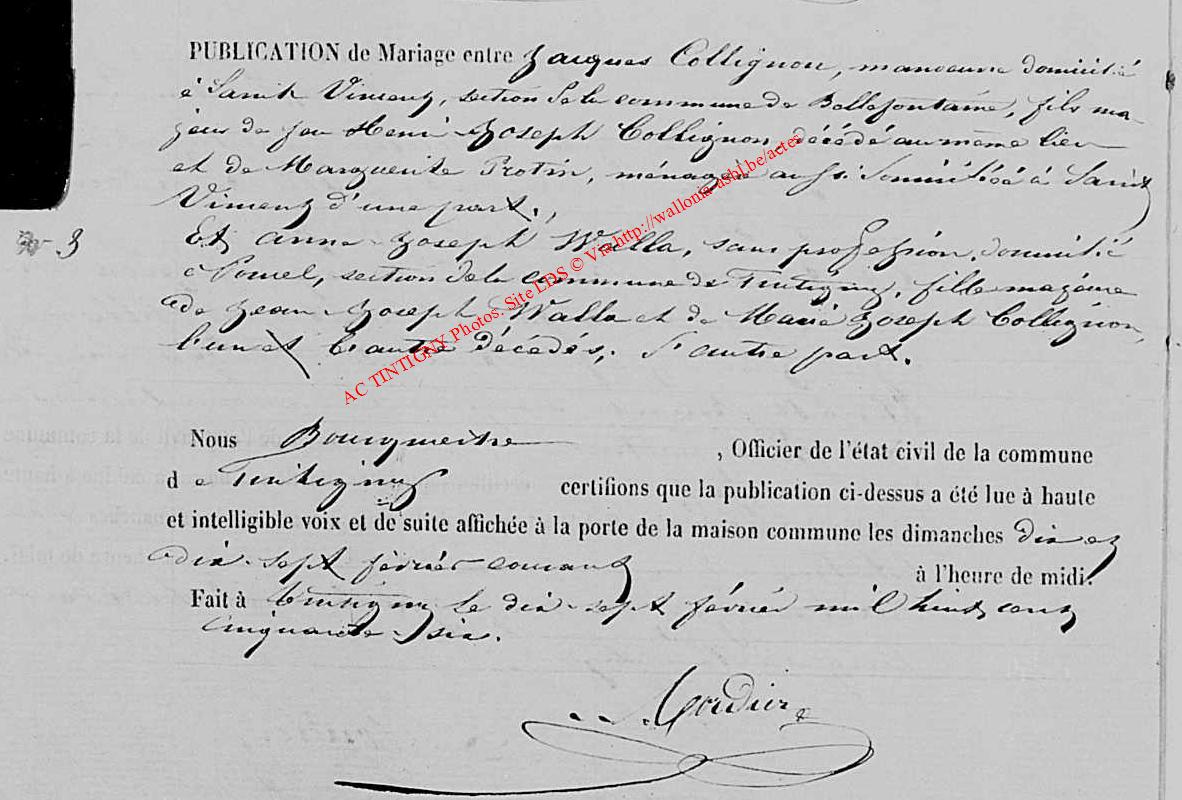 PUBLICATION de Mariage entre Jacques Collignon, manoeuvre domicilié
à Saint Vincent, section de la commune de Bellefontaine, fils ma-
jeur de feu Henri-Joseph Collignon, décédé au même lieu
et de Marguerite Protin, ménagère aussi domiciliée à Saint
Vincent d'une part.,
N° 3
Et anne-Joseph Walla, sans profession, domicilié
à Poncel, section de la commune de Tintigny, fille majeure
de Jean-Joseph Walla et de Marie Joseph Collignon,
l'un et l'autre décédés. d'autre part.
AC TINTIGNY Photos. Site LDS © Via http://wallonia-asbl.be/actes
Nous Bourgmestre , Officier de l'état civil de la commune
de Tintigny certifions que la publication ci-dessus a été lue à haute
et intelligible voix et de suite affichée à la porte de la maison commune les dimanches dix et
dix-sept février courant à l'heure de midi.
Fait à Tintigny le dix-sept février mil huit cent
cinquante-six.